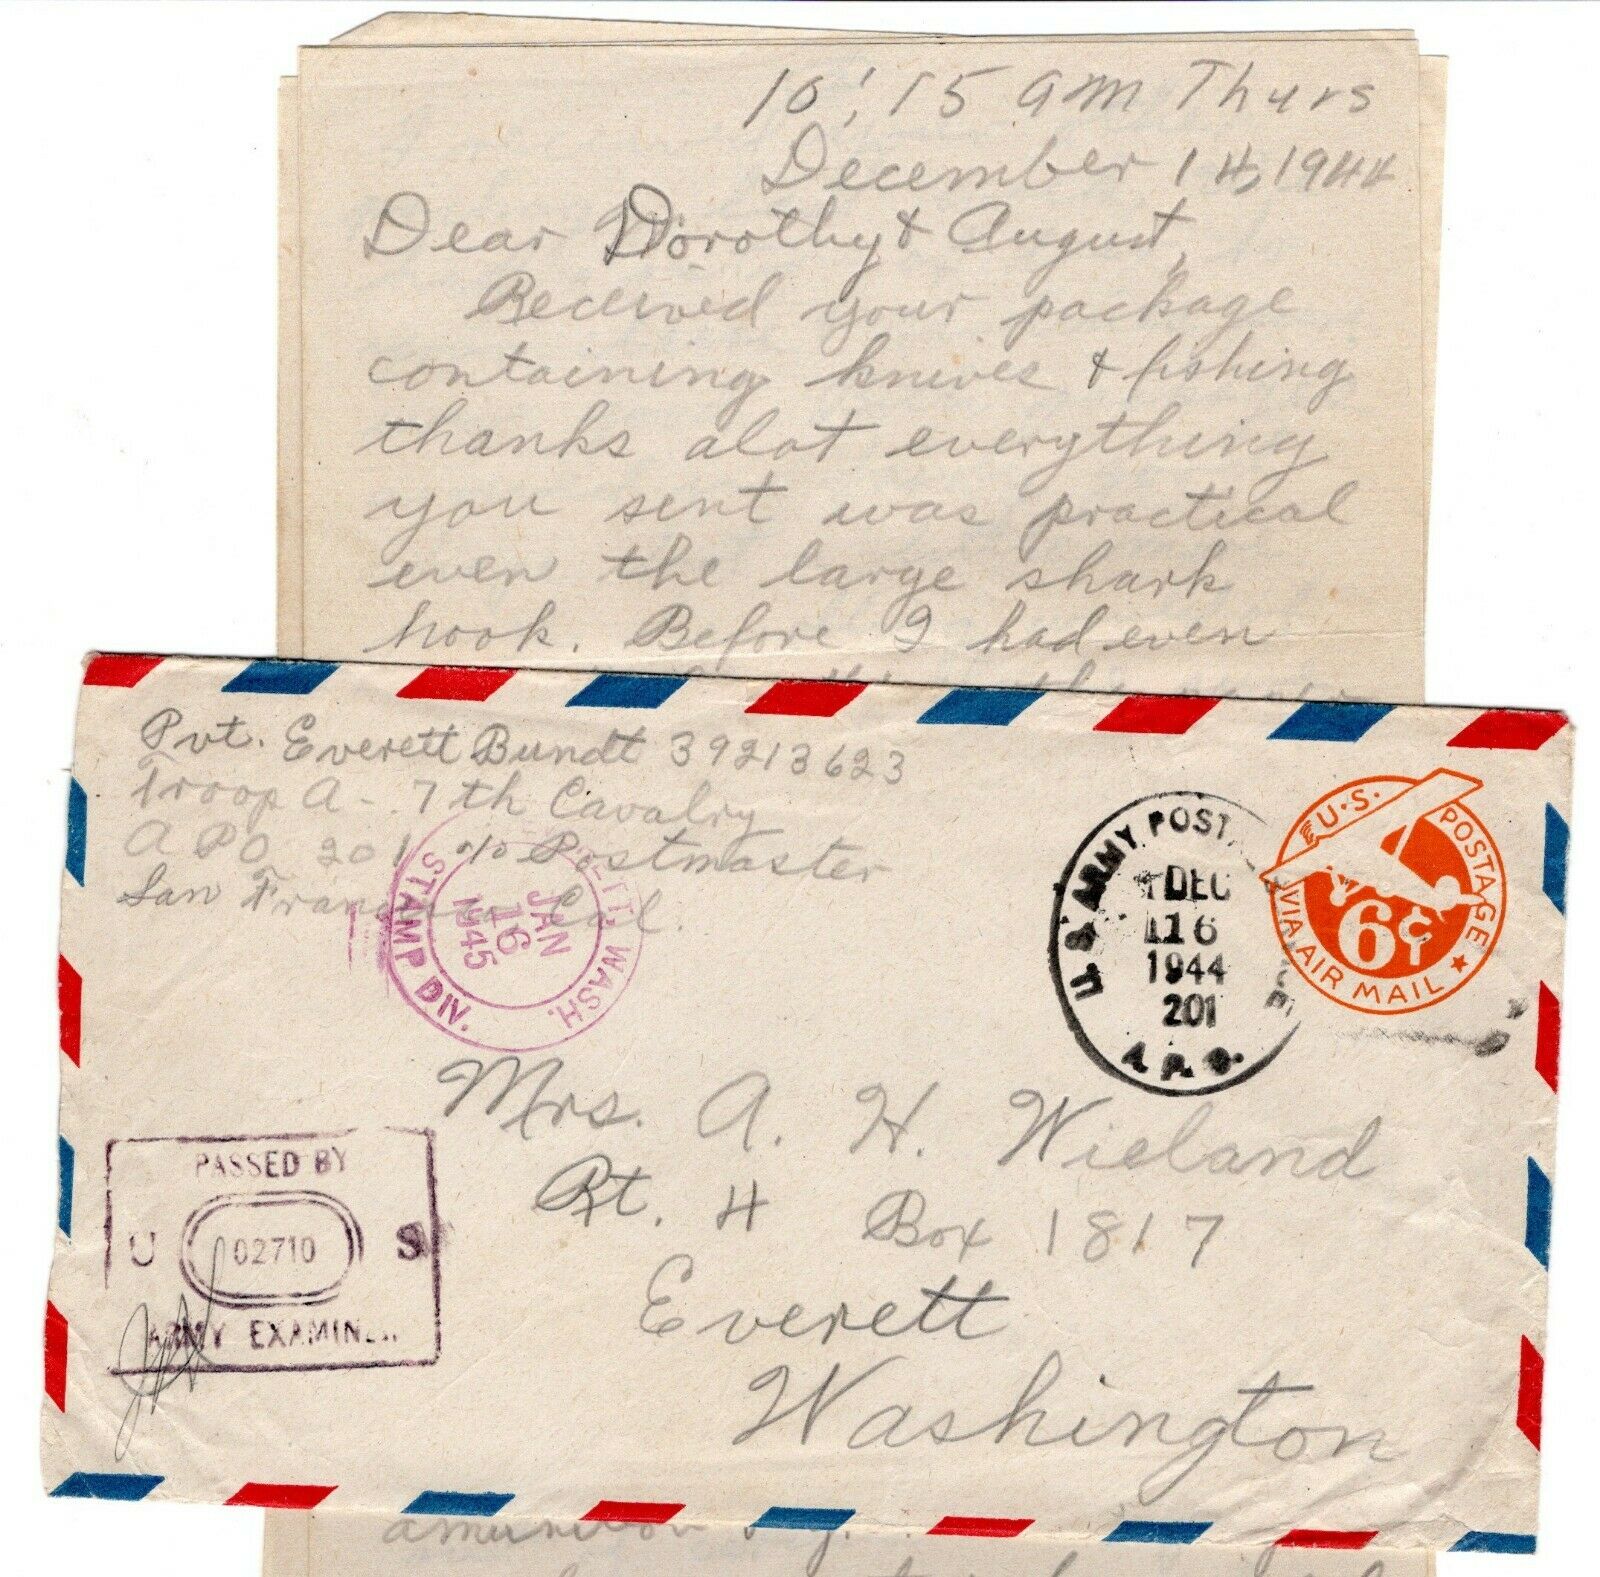 10:15 am Thurs
December 14, 1944
Dear Dorothy & August,
Received your package
containing knives & fishing
thanks alot everything
you sent was practical
even the large shark
hook. Before I had even
Pvt. Everett Bundt 39213623
Troop A - 7th Cavalry
A P O 201 c/o Postmaster
San Francisco Cal.
WASH.
JAN
16
1945
STAMP DIV.
U.S. ARMY POSTAL
DEC
16
1944
201
A.P.O.
U.S. POSTAGE
6¢
VIA AIR MAIL
Mrs. A. H. Wieland
Rt. 4 Box 1817
Everett
Washington
PASSED BY
U 02710 S
ARMY EXAMINER